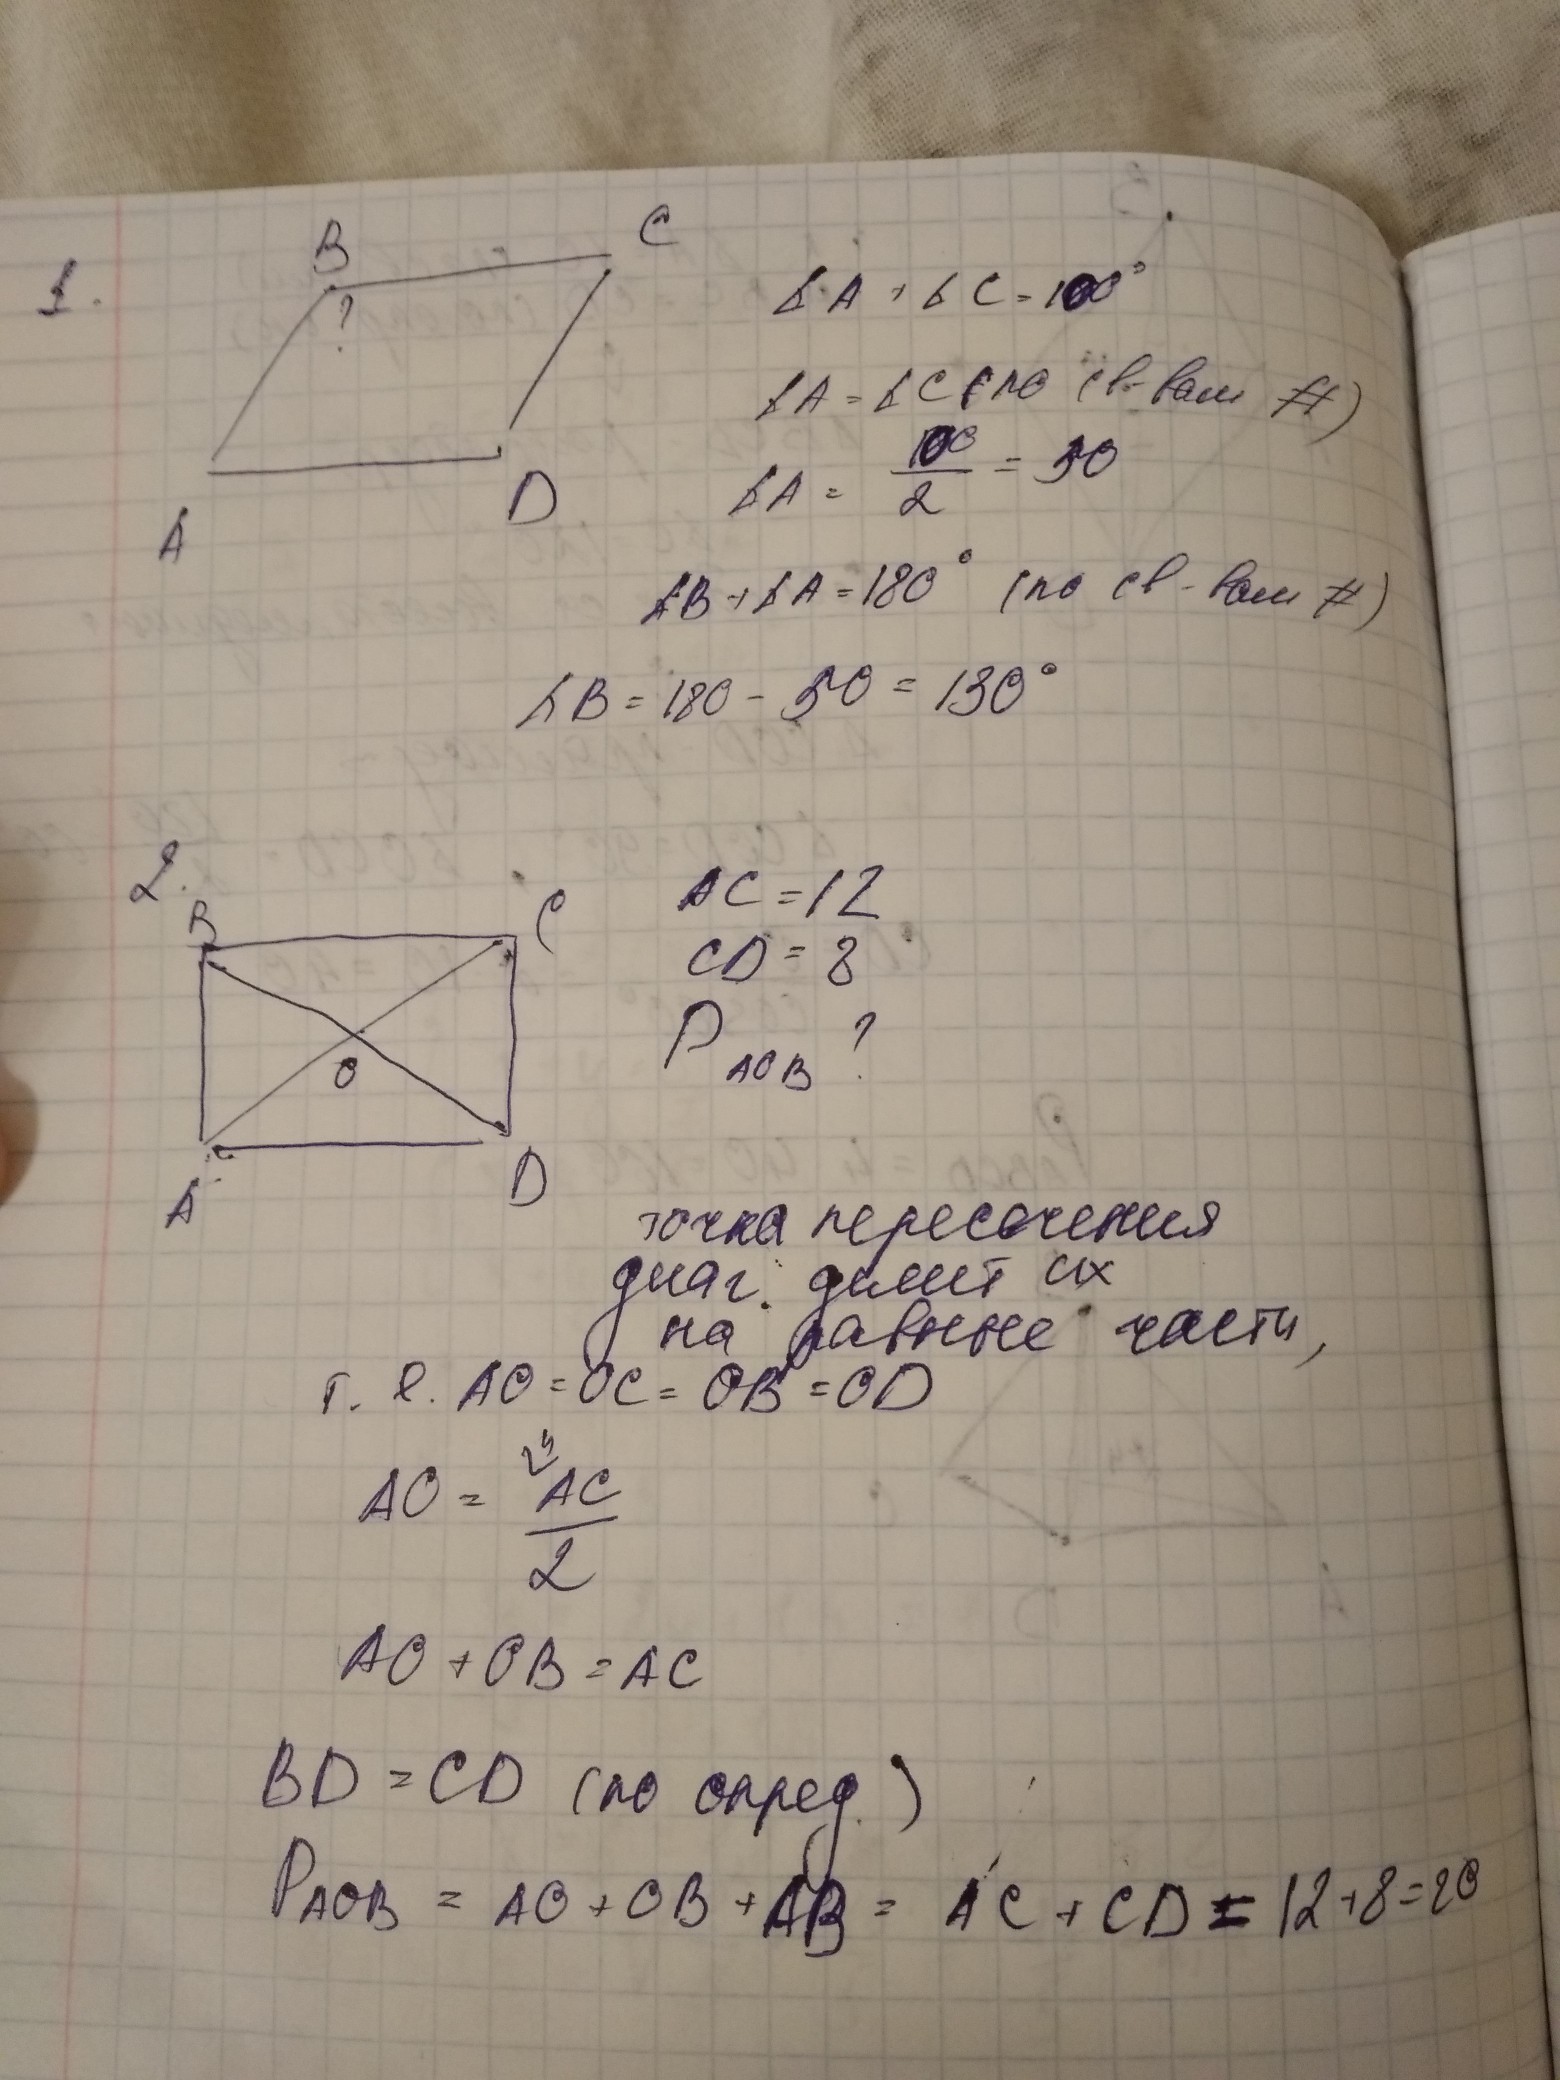 1.
B
C
?
A
D
∠A + ∠C = 100°
∠A = ∠C (по св-вам #)
∠A = 100/2 = 50
∠B + ∠A = 180° (по св-вам #)
∠B = 180 - 50 = 130°
2.
B
C
O
A
D
AC = 12
CD = 8
P AOB ?
точка пересечения
диаг. делит их
на равные части,
т. е. AO = OC = OB = OD
AO = AC/2
AO + OB = AC
BD = CD (по опред.)
P AOB = AO + OB + AB = AC + CD = 12 + 8 = 20